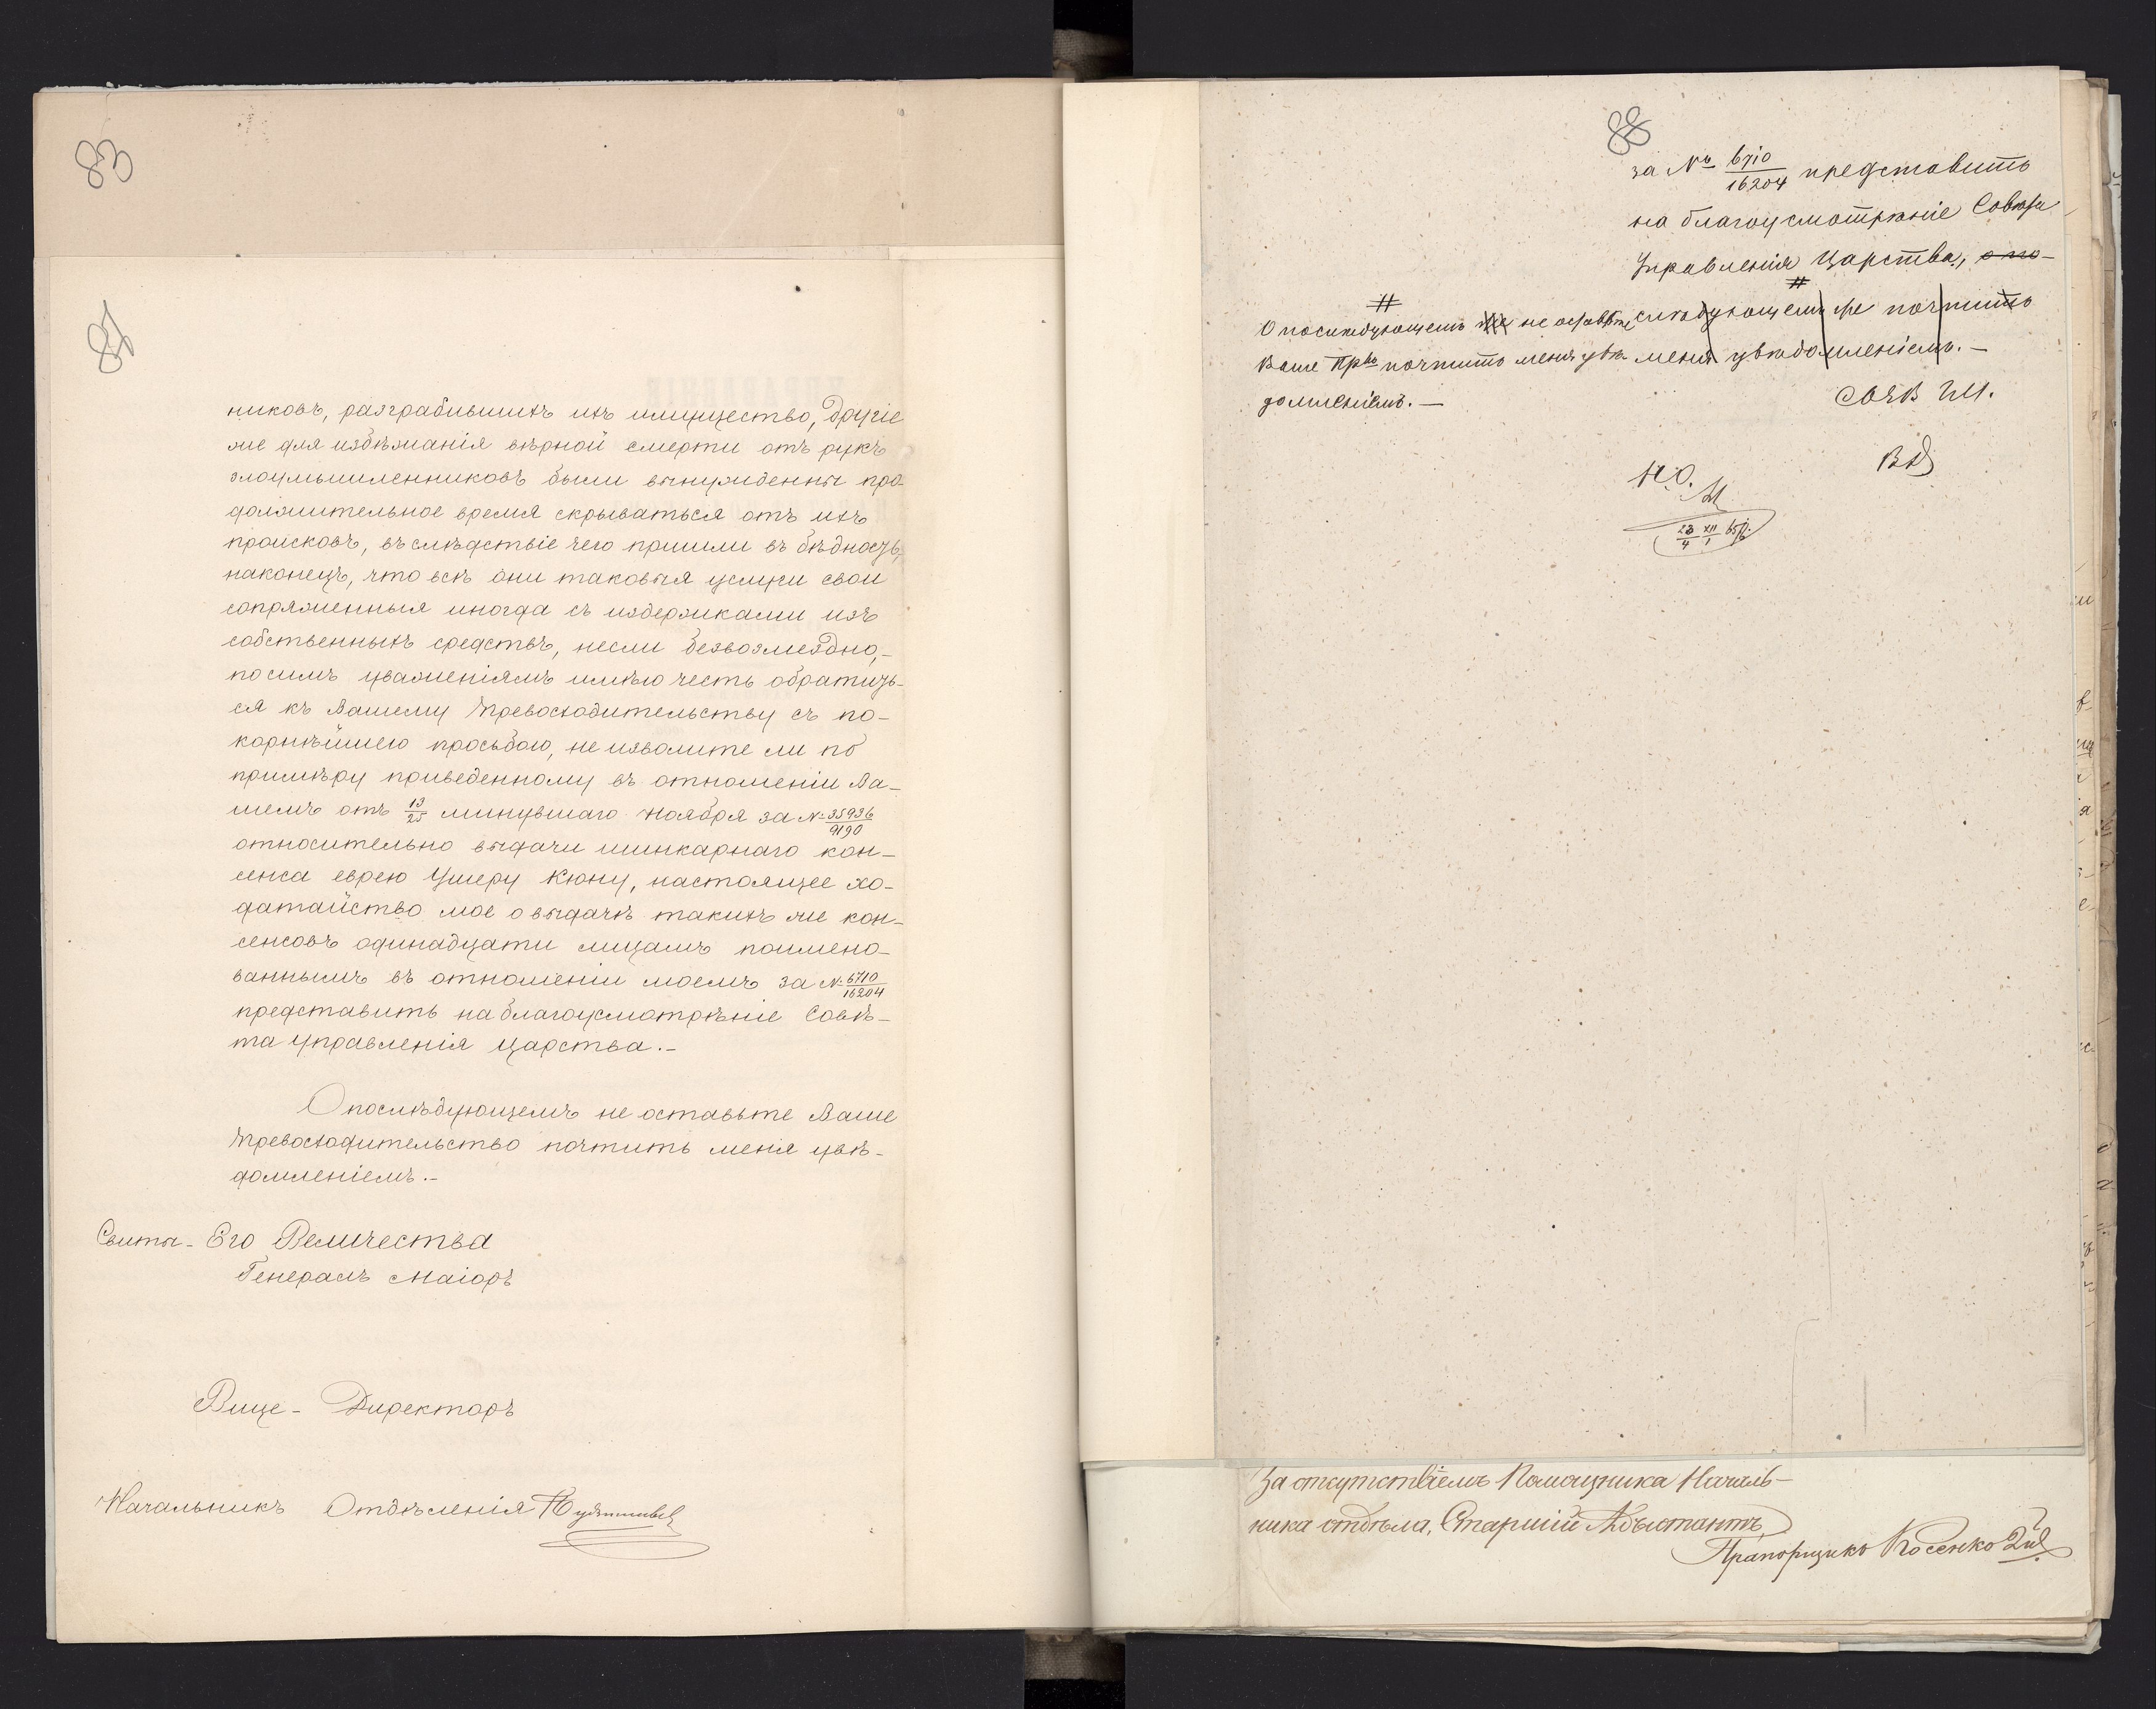 83
87
никовъ, разграбившихъ ихъ имущество, другіе
же для избѣжанія вѣрной смерти отъ рукъ
злоумышленниковъ были вынужденны про-
должительное время скрываться отъ ихъ
происковъ, въ слѣдствіе чего пришли въ бѣдность,
наконецъ, что всѣ они таковыя услуги свои
сопряженныя иногда съ издержками изъ
собственныхъ средствъ, несли безвозмездно,-
по симъ уваженіямъ имѣю честь обратить-
ся къ Вашему Превосходительству съ по-
корнѣйшею просьбою, не изволите ли по
примѣру приведенному въ отношеніи Ва-
шемъ отъ 13/25 минувшаго Ноября за № 35936/9190
относительно выдачи шинкарнаго кон-
сенса еврею Ушеру Кюну, настоящее хо-
датайство мое о выдачѣ такихъ же кон-
сенсовъ одинадцати лицамъ поимено-
ваннымъ въ отношеніи моемъ за № 6710/16204
представить на благоусмотрѣніе Совѣ-
та Управленія Царства.-
О послѣдующемъ не оставьте Ваше
Превосходительство почтить меня увѣ-
домленіемъ.-
Свиты Его Величества
Генералъ Маіоръ
Вице-Директоръ
Начальникъ Отдѣленія
88
за № 6710/16204 представить
на благоусмотрѣніе Совѣта
Управленія Царства, о по-
слѣдующемъ же почтить
меня увѣдомленіемъ.-
О послѣдующемъ не оставьте
Ваше Прво почтить меня увѣ-
домленіемъ.-
СЕВ ГМ.
ВД
НО.
За отсутствіемъ Помощника Началь-
ника отдѣла, Старшій Адъютантъ,
Прапорщикъ Косенко 2й